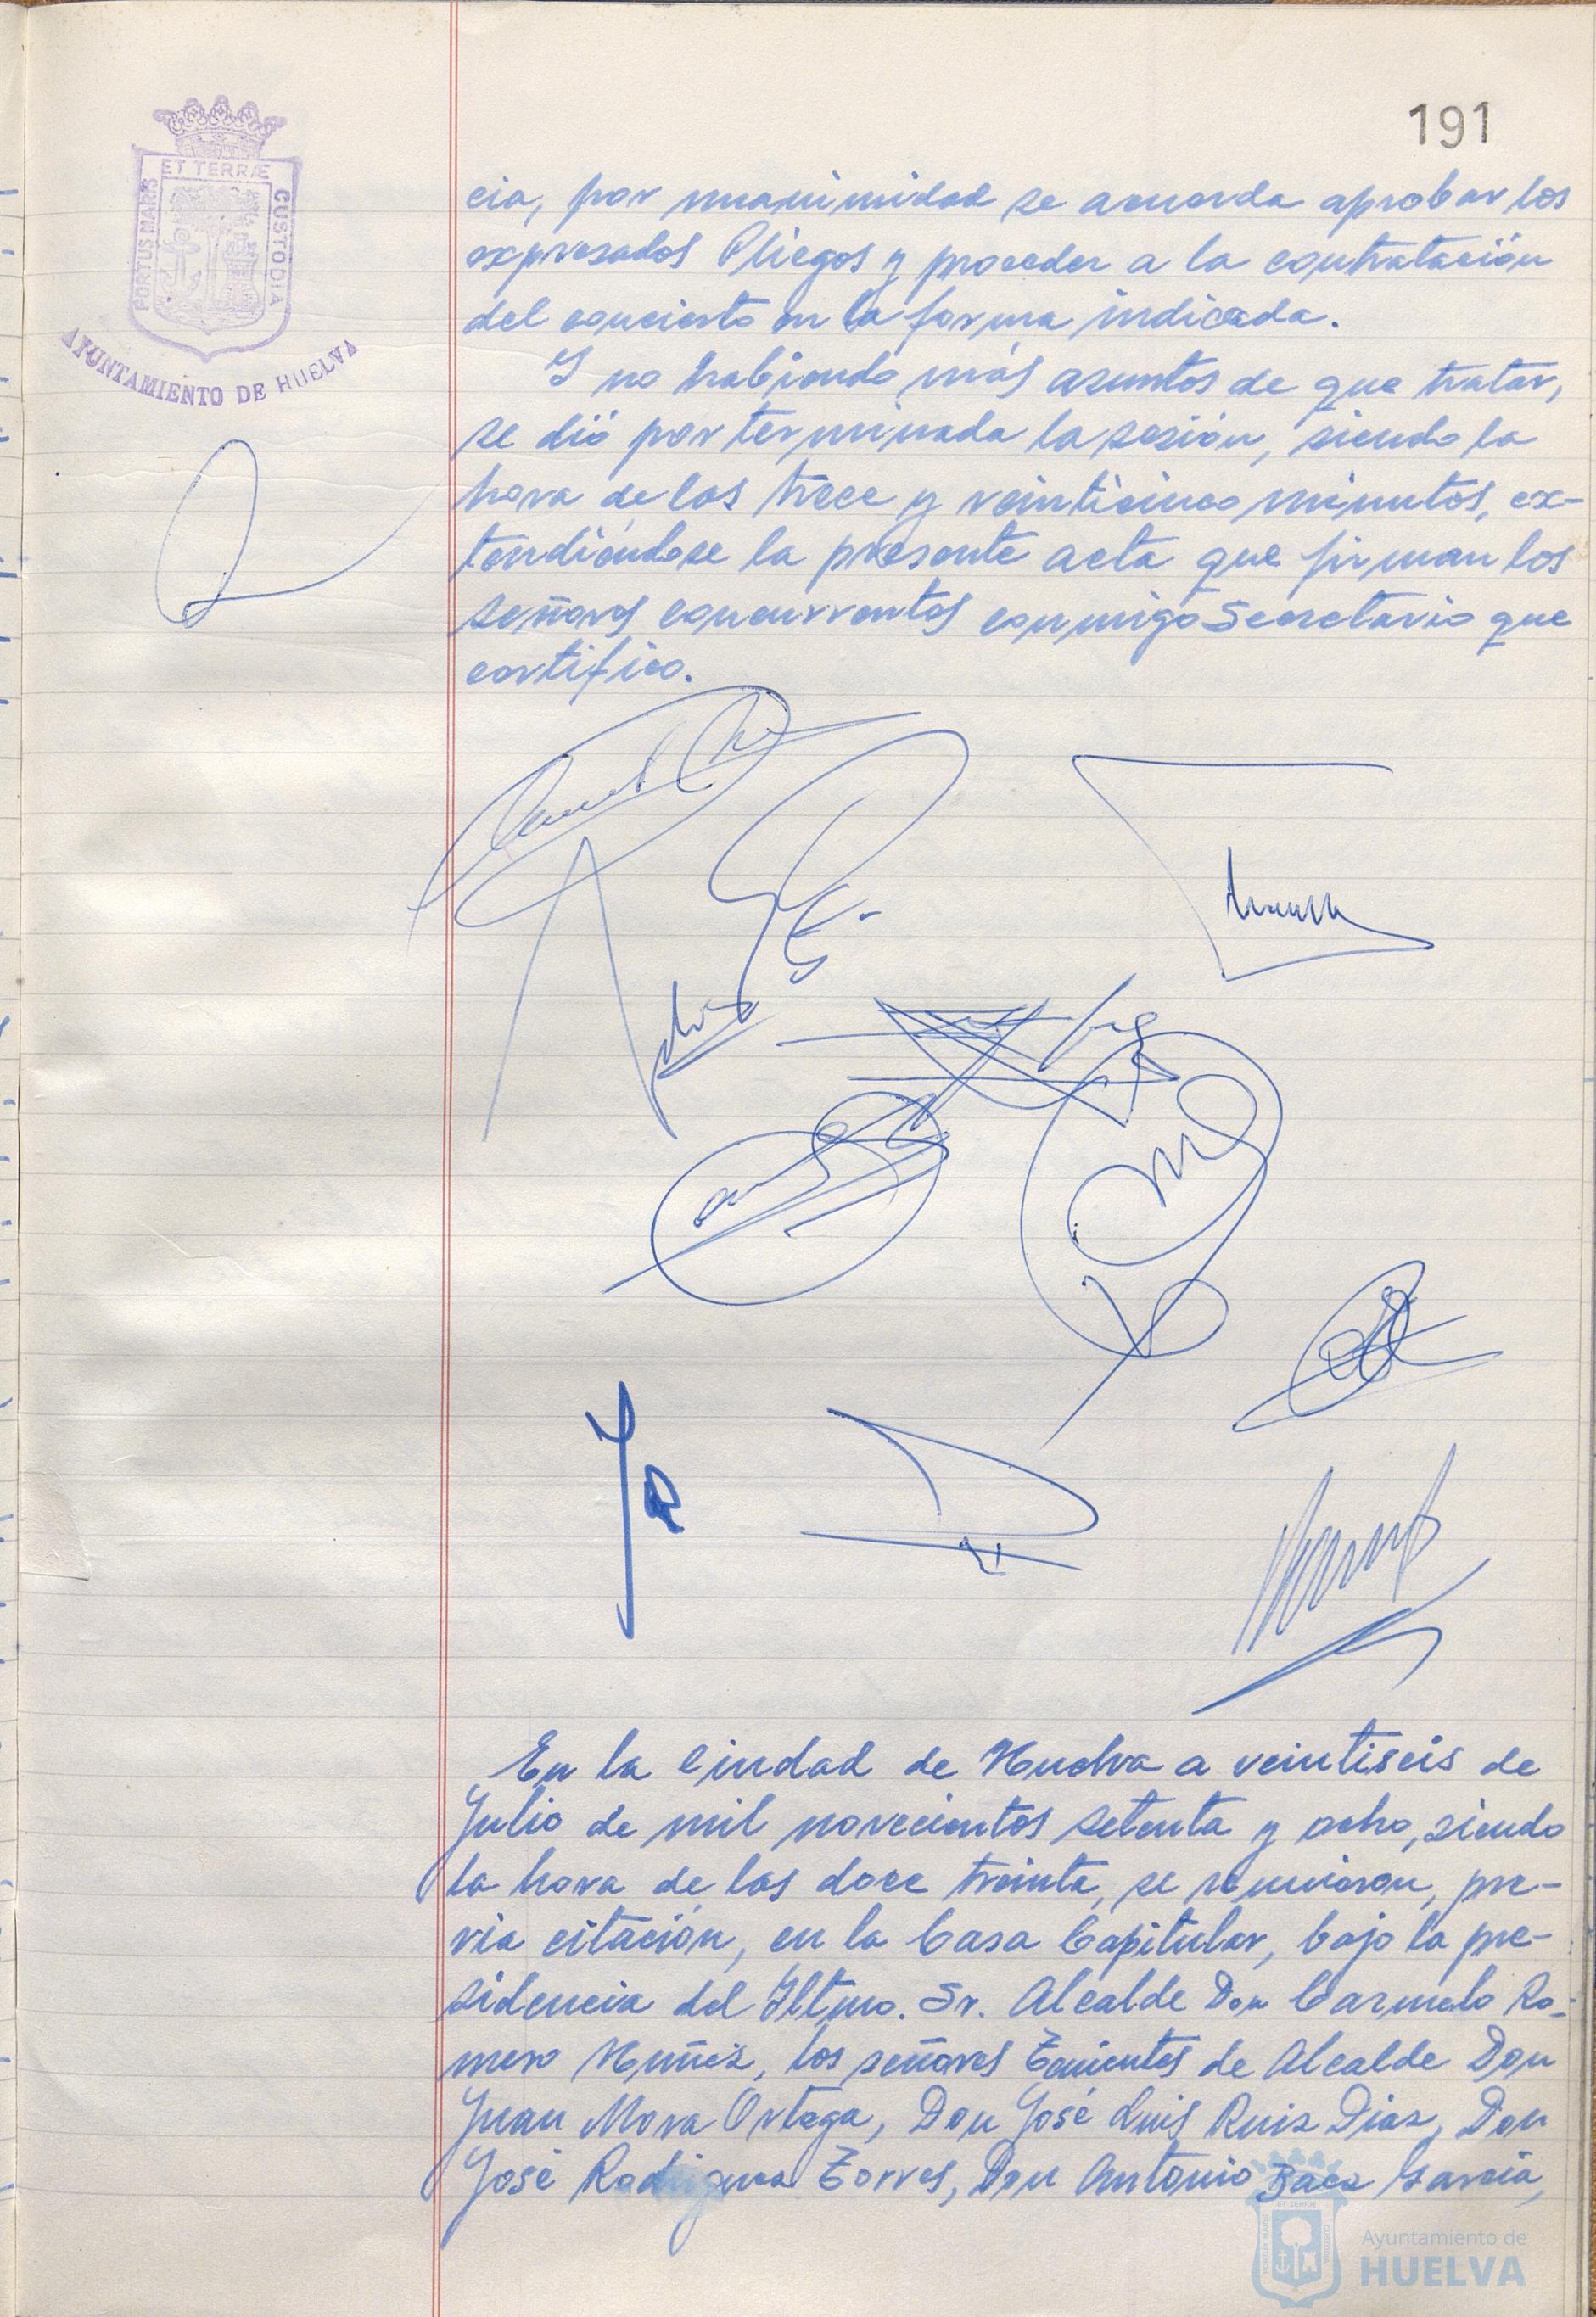 191
ET TERRÆ
PORTUS MARIS
CUSTODIA
AYUNTAMIENTO DE HUELVA
cia, por unanimidad se acuerda aprobar los
expresados Pliegos y proceder a la contratación
del concierto en la forma indicada.
Y no habiendo más asuntos de que tratar,
se dió por terminada la sesión, siendo la
hora de las trece y veinticinco minutos, ex-
tendiéndose la presente acta que firman los
señores concurrentes conmigo Secretario que
certifico.
En la Ciudad de Huelva a veintiseis de
Julio de mil novecientos setenta y ocho, siendo
la hora de las doce treinta, se reunieron, pre-
via citación, en la Casa Capitular, bajo la pre-
sidencia del Iltmo. Sr. Alcalde Don Carmelo Ro-
mero Núñez, los señores Tenientes de Alcalde Don
Juan Mora Ortega, Don José Luis Ruiz Diaz, Don
José Rodriguez Torres, Don Antonio Baez Garcia,
Ayuntamiento de
HUELVA